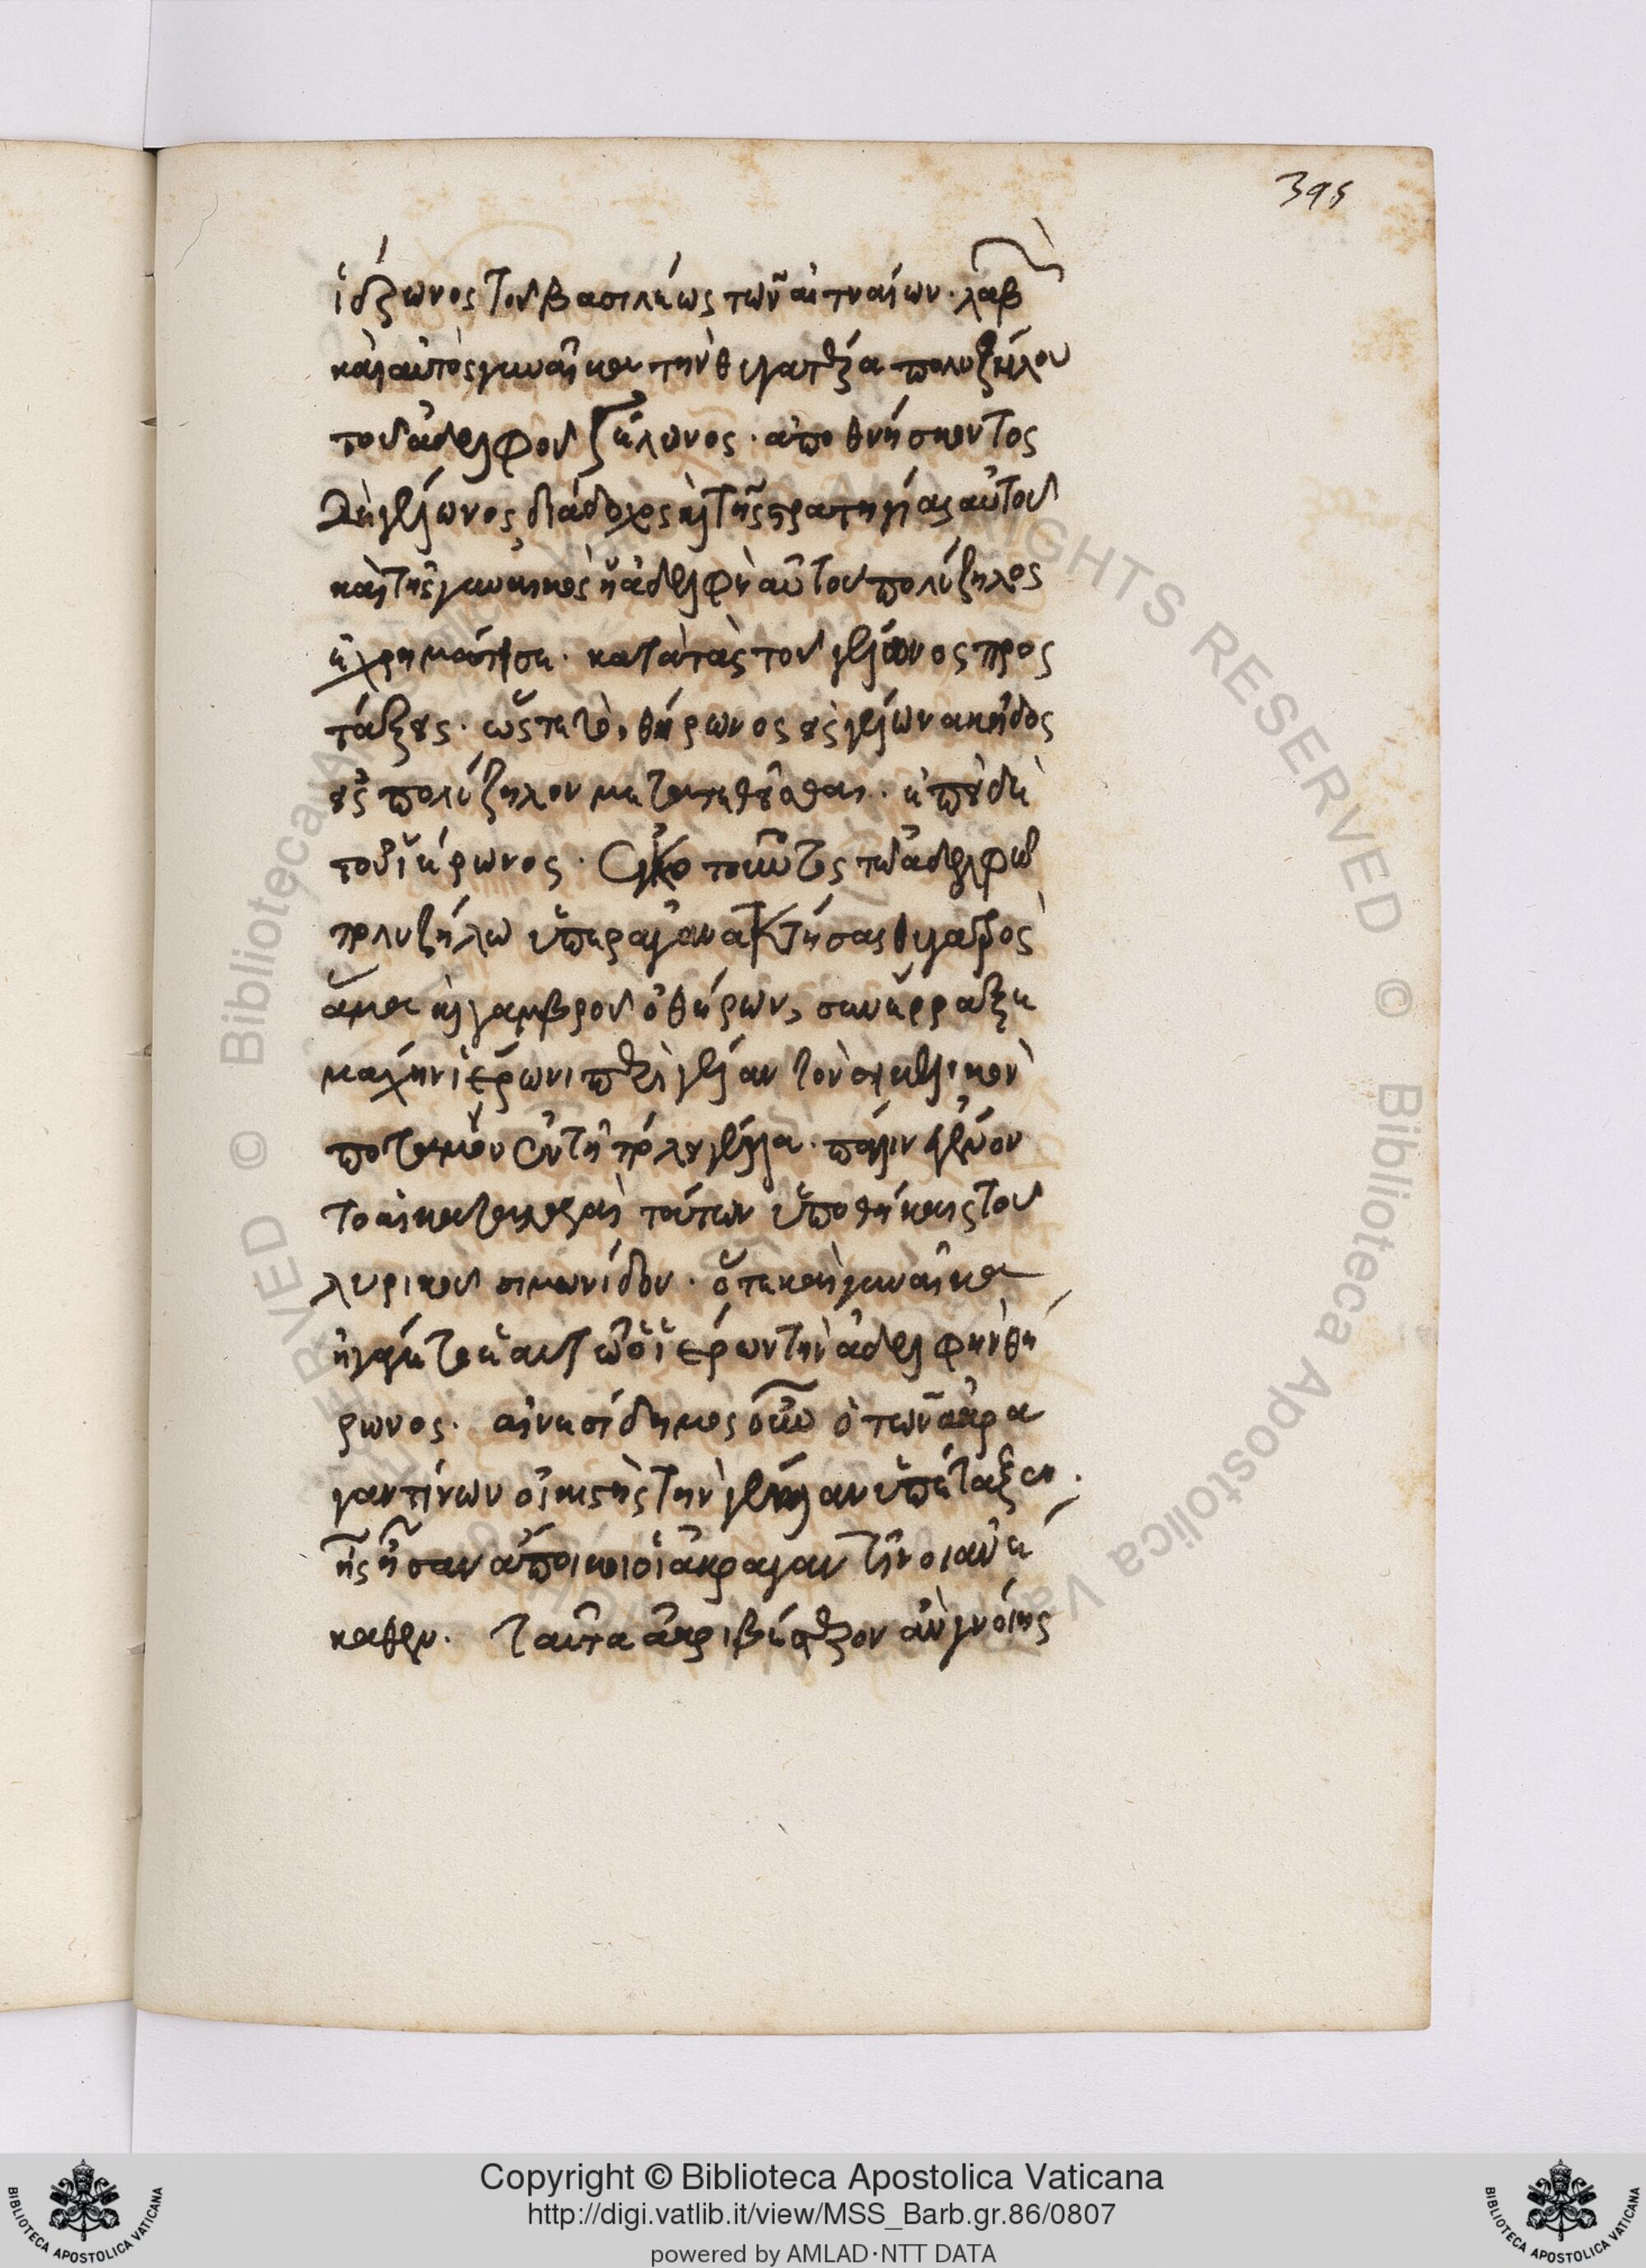 395
ἱέρωνος τοῦ βασιλέως τῶν αἰτναίων· λαβ
καὶ αὐτὸς γυναῖκα τὴν θυγατέρα πολυζήλου
τοῦ ἀδελφοῦ γέλωνος· ἀποθνήσκοντος
δὲ γέλωνος διάδοχος καὶ τῆς στρατηγίας αὐτοῦ
καὶ τῆς γυναικὸς ἡ ἀδελφὴ αὐτοῦ πολύζηλος
ἐχρημάτισε· κατὰ τὰς τοῦ γέλωνος προσ
τάξεις· ὥστε τὸ θήρωνος εἰς γέλωνα κῆδος
εἰς πολύζηλον μετατεθεῖσθαι· ἐπεὶ δὲ
τοῦ ἱέρωνος· τῷ ἀδελφῷ
πολυζήλῳ ὑπεραγανακτήσας θυγατρὸς
ἅμα καὶ γαμβροῦ ὁ θήρων, συνέρραξε
μάχην ἱέρωνι περὶ γέλαν τὸν σικελικὸν
ποταμὸν ἐν τῇ πόλει γέλᾳ· πάλιν
τούτων ὑποθήκαις τοῦ
λυρικοῦ σιμωνίδου· ὅτε καὶ γυναῖκα
ἠγάγετο ἑαυτῷ ὁ ἱέρων τὴν ἀδελφὴν θή
ρωνος· αἰνεσίδημος ὁ τῶν ἀκρα
γαντίνων οἰκιστὴς τὴν γέλαν ὑπέταξεν·
ἧς ἦσαν ἄποικοι οἱ ἀκραγαντῖνοι ἀνέ
καθεν. ταῦτα ἀκριβέστερον ἂν γνοίης
Copyright © Biblioteca Apostolica Vaticana
http://digi.vatlib.it/view/MSS_Barb.gr.86/0807
powered by AMLAD·NTT DATA